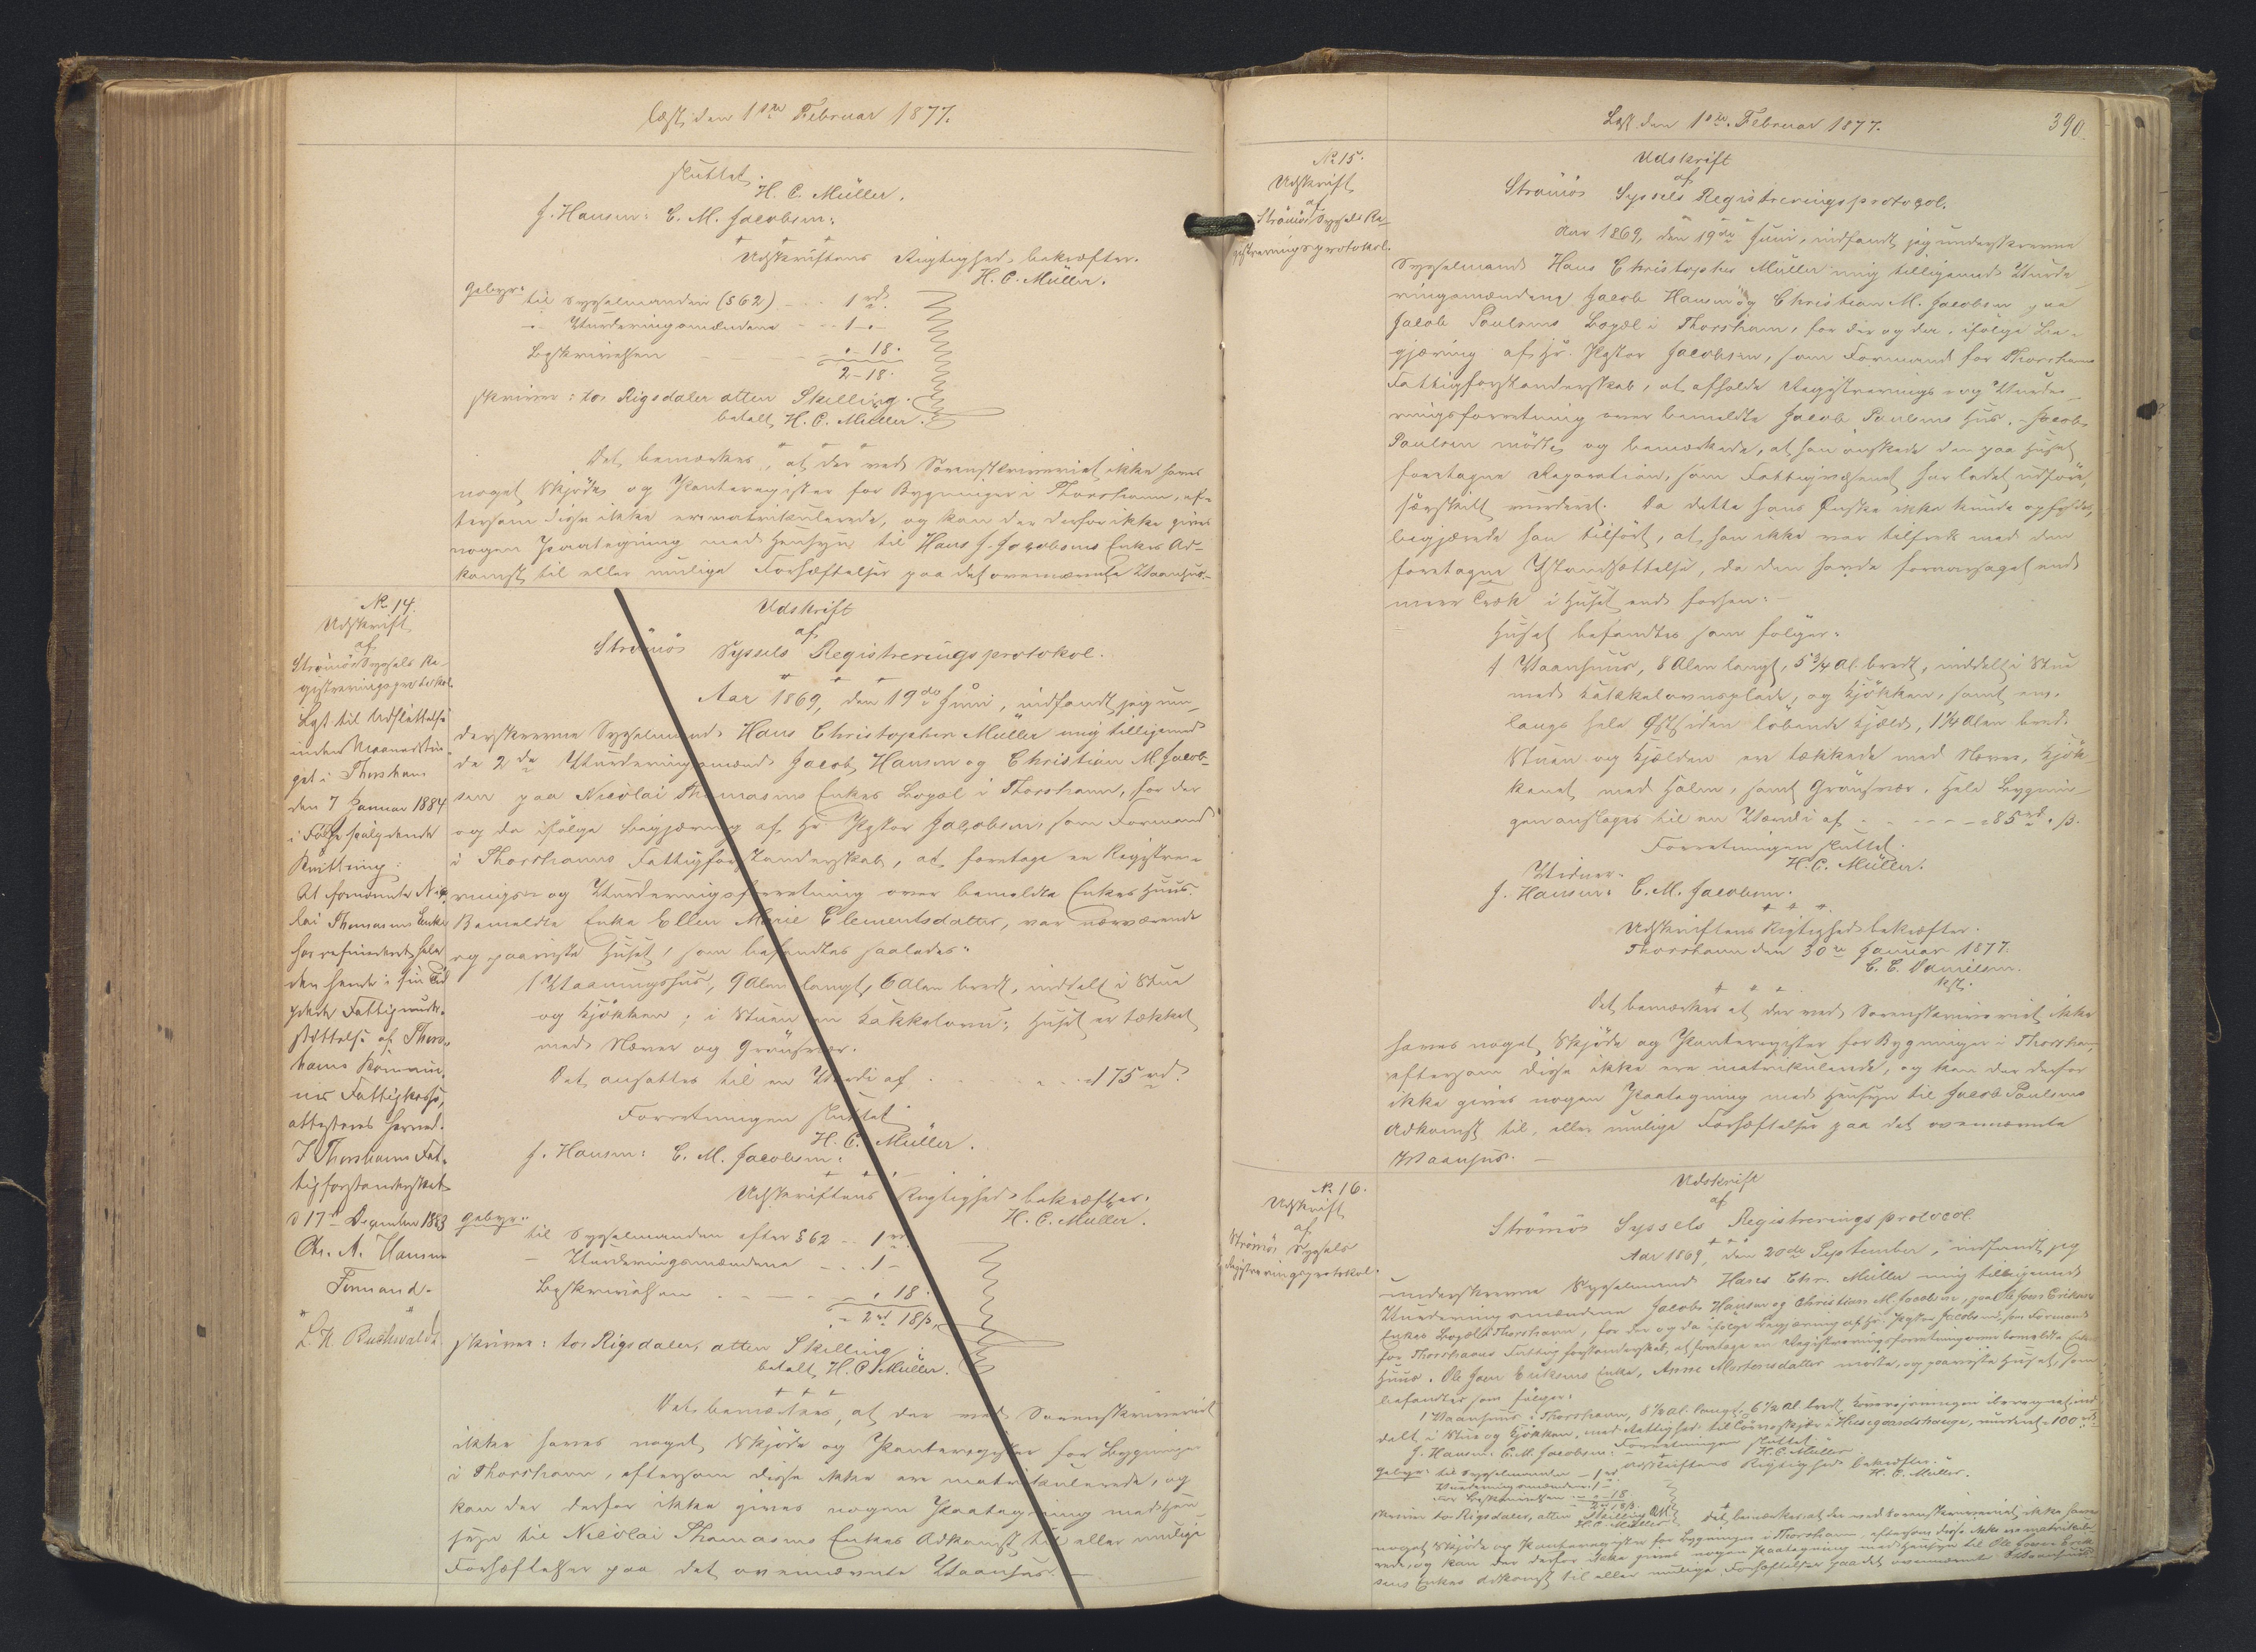 Læst den 1ste Februar 1877.
sluttet.
H. C. Müller.
J. Hansen: C. M. Jacobsen:
Udskriftens Rigtighed bekræfter.
H. C. Müller.
Gebyr:
til Sysselmanden (§62) - - - 1 rd
- Vurderingsmændene - - - 1 - "
Beskrivelsen - - - " - 18.
2 - 18.
skriver: to Rigsdaler atten Skilling.
betalt H. C. Müller.
Det bemærkes, at der ved Sorenskriveriet ikke haves
noget Skjøde og Panteregister for Bygninger i Thorshavn, ef-
tersom disse ikke ere matrikulerede, og kan der derfor ikke gives
nogen Paategning med Hensyn til Hans J. Jacobsens Enkes Ad-
komst til eller mulige Forhæftelser paa det ovennævnte Vaanhus.-
No 14.
Udskrift
af
Strömös Syssels Re-
gistreringsprotokol.
Lyst til Udslettelse
inden Maanedstin-
get i Thorshavn
den 7 Januar 1884
i Følge saalydende
Kvittering:
At fornævnte Nico-
lai Thomasens Enke
har refunderet hele
den hende i sin Tid
ydede Fattigunder-
støttelse af Thors-
havns Kommu-
nes Fattigkasse,
attesteres herved.
I Thorshavns Fat-
tigforstanderskab
d 17de December 1883
Chr. A. Hansen
Formand.
L. N. Buchwaldt.
Udskrift
af
Strömös Syssels Registreringsprotokol.
Aar 1869, den 19de Juni, indfandt jeg un-
derskrevne Sysselmand Hans Christopher Müller mig tilligemed
de 2de Vurderingsmænd Jacob Hansen og Christian M. Jacob-
sen paa Nicolai Thomasens Enkes Bopæl i Thorshavn, for der
og da ifölge Begjæring af Hr Pastor Jacobsen, som Formand
i Thorshavns Fattigforstanderskab, at foretage en Registre-
rings- og Vurderingsforretning over bemeldte Enkes Huus.
Bemeldte Enke Ellen Marie Clementsdatter, var nærværende
og paaviste Huset, som befandtes saaledes:
1 Vaaningshus, 9 Alen langt, 6 Alen bredt, inddelt i Stue
og Kjökken; i Stuen en Kakkelovn; Huset er tækket
med Næver og Grönsvær.
Det ansattes til en Værdi af - - - 175 rd.
Forretningen sluttet
H. C. Müller.
J. Hansen: C. M. Jacobsen:
Udskriftens Rigtighed bekræfter.
H. C. Müller.
Gebyr:
til Sysselmanden efter §62 - - 1 rd
- Vurderingsmændene - - - 1 -
Beskrivelsen - - - " 18.
2 rd 18 ß.
skriver: to Rigsdaler, atten Skilling
betalt H. C. Müller.
Det bemærkes, at der ved Sorenskriveriet
ikke haves noget Skjöde og Panteregister for Bygninger
i Thorshavn, eftersom disse ikke ere matrikulerede, og
kan der derfor ikke gives nogen Paategning med Hen-
syn til Nicolai Thomasens Enkes Adkomst til eller mulige
Forhæftelser paa det ovennævnte Vaanhus.-
Læst den 1ste Februar 1877.
390.
No 15.
Udskrift
af
Strömös Syssels Re-
gistreringsprotokol.
Udskrift
af
Strömös Syssels Registreringsprotocol.
Aar 1869, den 19de Juni, indfandt jeg underskrevne
Sysselmand Hans Christopher Müller mig tilligemed Vurde-
ringsmændene Jacob Hansen og Christian M. Jacobsen paa
Jacob Poulsens Bopæl i Thorshavn, for der og da, ifölge Be-
gjæring af Hr. Pastor Jacobsen, som Formand for Thorshavns
Fattigforstanderskab, at afholde Registrerings- og Vurde-
ringsforretning over bemeldte Jacob Poulsens Hus. - Jacob
Poulsen mödte og bemærkede, at han önskede den paa Huset
foretagne Reparation, som Fattigvæsenet har ladet udföre,
særskilt vurderet. Da dette hans Ønske ikke kunde opfyldes,
begjærede han tilfört, at han ikke var tilfreds med den
foretagne Istandsættelse, da den havde foraarsaget end
mere Træk i Huset end forhen:-
Huset befandtes som fölger:
1 Vaanhuus, 8 Alen langt, 5 3/4 Al. bredt, inddelt i Stue
med Kakkelovnsplade, og Kjökken, samt en,
langs hele Østsiden löbende Kjæld, 1 1/4 Alen bred.
Stuen og Kjælden er tækkede med Næver, Kjök-
kenet med Halm, samt Grönsvær. Hele Bygnin-
gen ansloges til en Værdi af - - - - - 85 rd. " ß.
Forretningen sluttet.
H. C. Müller.
Vidner.
J. Hansen: C. M. Jacobsen.
Udskriftens Rigtighed bekræfter.
Thorshavn den 30te Januar 1877.
C. C. Danielsen.
kst.
Det bemærkes at der ved Sorenskriveriet ikke
haves noget Skjöde og Panteregister for Bygninger i Thorshavn,
eftersom disse ikke ere matrikulerede, og kan der derfor
ikke gives nogen Paategning med Hensyn til Jacob Poulsens
Adkomst til, eller mulige Forhæftelser paa det ovennævnte
Vaanhus.-
No 16.
Udskrift
af
Strömös Syssels
Registreringsprotokol.
Udskrift
af
Strömös Syssels Registreringsprotocol.
Aar 1869, den 20de September, indfandt jeg
underskrevne Sysselmand Hans Chr. Müller mig tilligemed
Vurderingsmændene Jacob Hansen og Christian M. Jacobsen, paa Ole Joen Eriksens
Enkes Bopæl i Thorshavn, for der og da ifölge Begjæring af Hr. Pastor Jacobsen, som Formand
for Thorshavns Fattigforstanderskab, at foretage en Registreringsforretning over bemeldte Enkes
Huus. Ole Joen Eriksens Enke, Anne Mortensdatter mödte, og paaviste Huset, som
befandtes som fölger:
1 Vaanhuus i Thorshavn, 8 1/2 Al. langt, 6 1/2 Al. bredt, iberegnet, ind-
delt i Stue og Kjökken, med Rettighed til Törveskjær i Husegaardshauge, vurderet - 100 rd.
Forretningen sluttet.
J. Hansen. C. M. Jacobsen. H. C. Müller
Udskriftens Rigtighed bekræfter.
H. C. Müller.
Gebyr: til Sysselmanden - 1 rd
Vurderingsmændene: 1 -
for Beskrivelsen - " - 18
2 rd 18 ß.
skriver to Rigsdaler, atten Skilling
H. C. Müller.
Det bemærkes at der ved Sorenskriveriet ikke haves
noget Skjöde og Panteregister for Bygninger i Thorshavn, eftersom disse ikke ere matrikule-
rede, og kan der derfor ikke gives nogen Paategning med Hensyn til Ole Joen Erik-
sens Enkes Adkomst til eller mulige Forhæftelser paa det ovennævnte Vaanhuus.